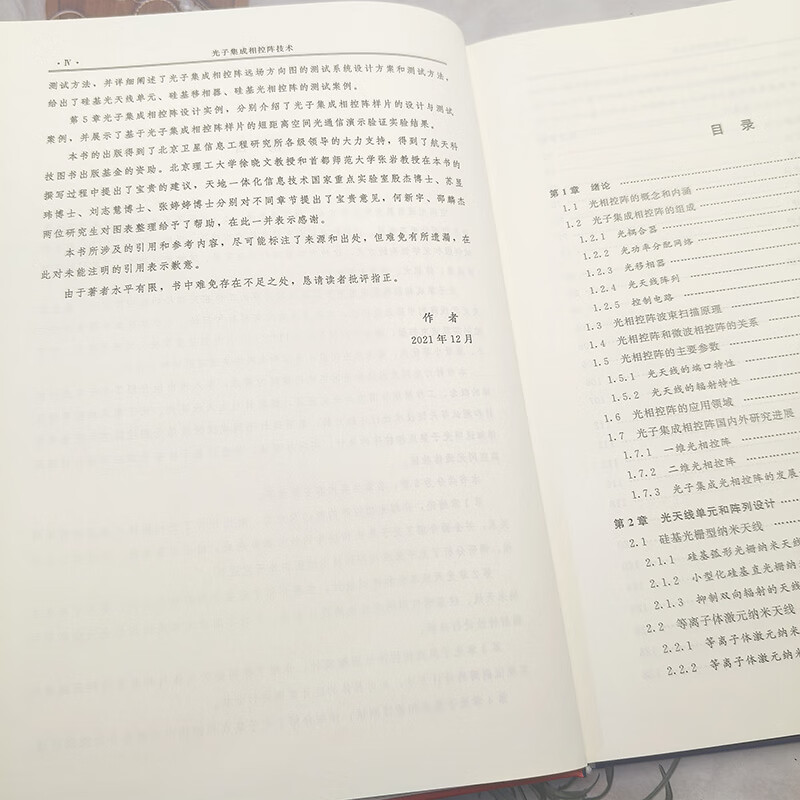 · Ⅳ ·
光子集成相控阵技术
测试方法，并详细阐述了光子集成相控阵远场方向图的测试系统设计方案和测试方法，
给出了硅基光天线单元、硅基移相器、硅基光相控阵的测试案例。
第5章光子集成相控阵设计实例，分别介绍了光子集成相控阵样片的设计与测试
案例，并展示了基于光子集成相控阵样片的短距离空间光通信演示验证实验结果。
本书的出版得到了北京卫星信息工程研究所各级领导的大力支持，得到了航天科
技图书出版基金的资助。北京理工大学徐晓文教授和首都师范大学张岩教授在本书的
撰写过程中提出了宝贵的建议，天地一体化信息技术国家重点实验室殷杰博士、苏昱
玮博士、刘志慧博士、张婷婷博士分别对不同章节提出了宝贵意见，何新宇、邵麟杰
两位研究生对图表整理给予了帮助，在此一并表示感谢。
本书所涉及的引用和参考内容，尽可能标注了来源和出处，但难免有所遗漏，在
此对未能注明的引用表示歉意。
由于著者水平有限，书中难免存在不足之处，恳请读者批评指正。
作 者
2021年12月
目 录
第1章 绪论
1.1 光相控阵的概念和内涵
1.2 光子集成相控阵的组成
1.2.1 光耦合器
1.2.2 光功率分配网络
1.2.3 光移相器
1.2.4 光天线阵列
1.2.5 控制电路
1.3 光相控阵波束扫描原理
1.4 光相控阵和微波相控阵的关系
1.5 光相控阵的主要参数
1.5.1 光天线的端口特性
1.5.2 光天线的辐射特性
1.6 光相控阵的应用领域
1.7 光子集成相控阵国内外研究进展
1.7.1 一维光相控阵
1.7.2 二维光相控阵
1.7.3 光子集成光相控阵的发展
第2章 光天线单元和阵列设计
2.1 硅基光栅型纳米天线
2.1.1 硅基弧形光栅纳米天线
2.1.2 小型化硅基直光栅纳
2.1.3 抑制双向辐射的天线
2.2 等离子体激元纳米天线
2.2.1 等离子体激元纳米
2.2.2 等离子体激元纳